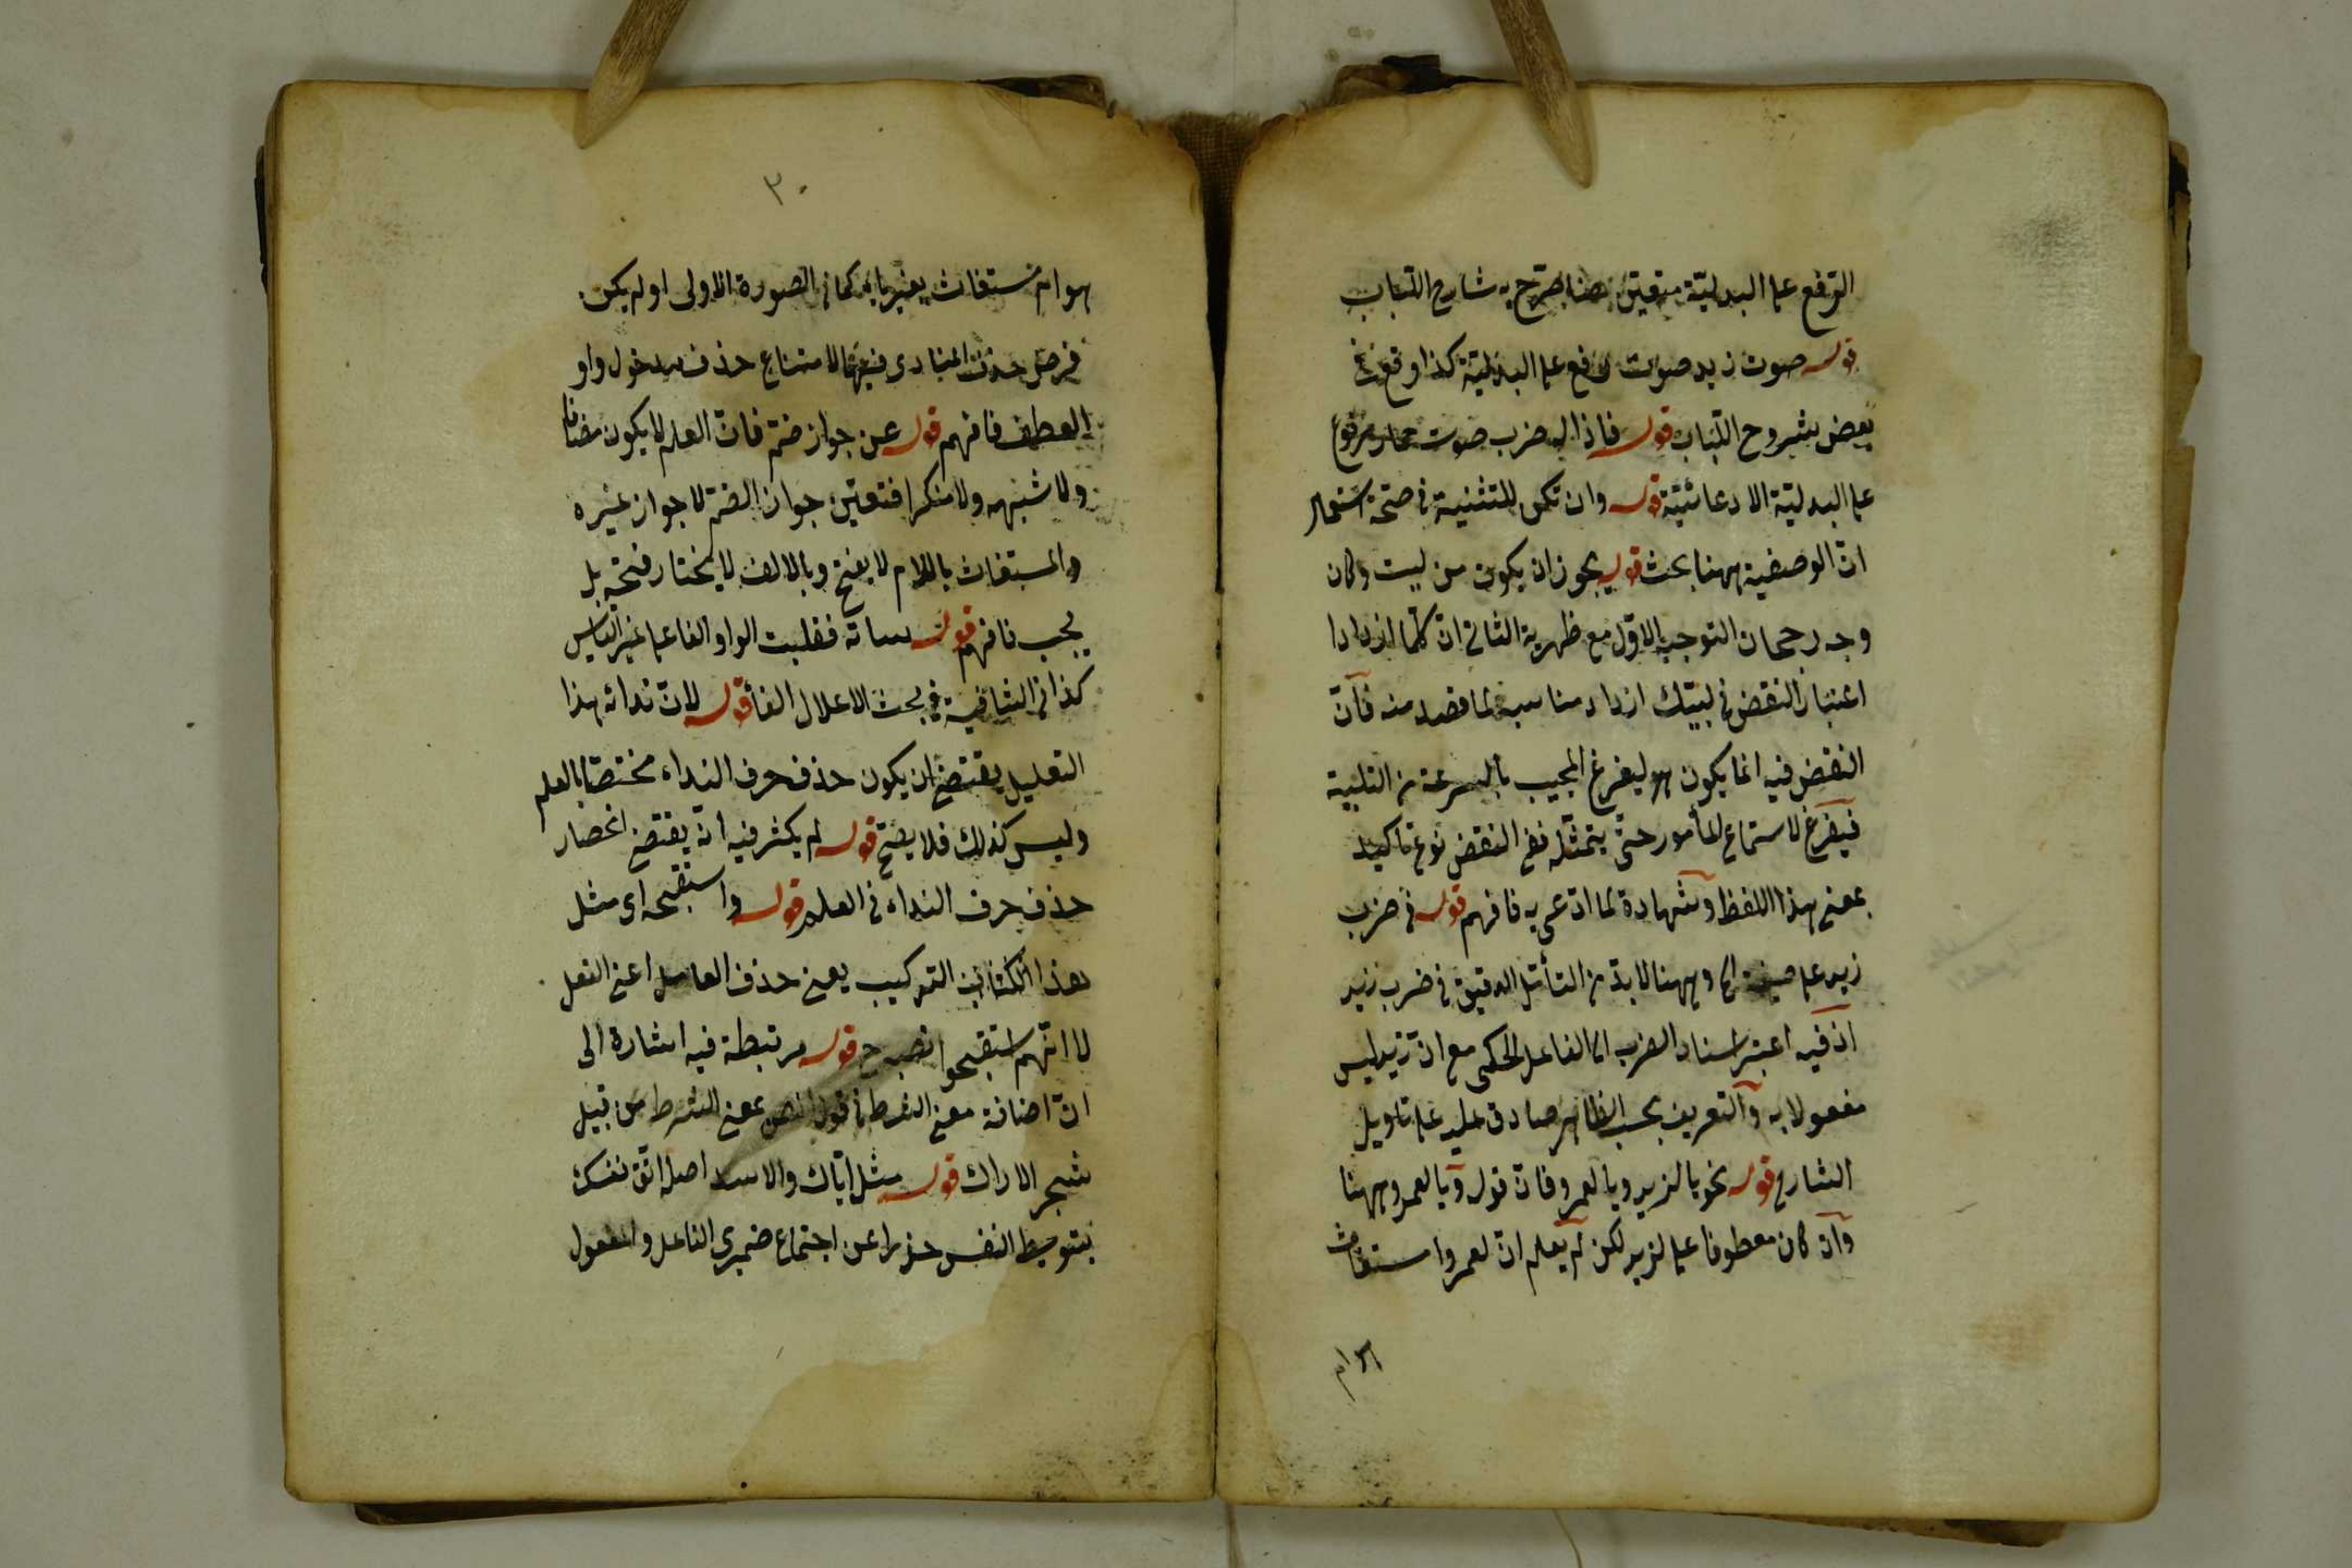 الرفع على البدلية متعين هنا صرّح به شارح اللباب
قوله صوت زيد صوت رفع على البدلية كذا وقع في
بعض شروح اللباب قوله فاذا له ضرب صوت حمار مرفوع
على البدلية الادعائية قوله وان تكن للتثنية في صحة استعمال
انّ الوصفية ههنا بحث قوله يجوز ان يكون من لبيت وكان
وجه رجحان التوجيه الاوّل مع ظهرية الثاني انّ كلما ازدادا
اعتبار النقض في لبيّك ازداد مناسبة لما قصد منه فآنّ
النقض فيه انما يكون هو ليفرغ المجيب بالسرعة من التلبية
فيفرغ لاستماع المأمور حتى يتمثّله ففي النقض نوع تاكيد
بمعنى هذا اللفظ وشهادة لما ادّعى به فافهم قوله في ضرب
زيد على صيغة الخ وههنا لا بدّ من التأمّل الدقيق في ضرب زيد
اذ فيه اعتبر اسناد الضرب الى الفاعل الحكمى مع انّ زيد ليس
مفعولا به وآلتعريف بحسب الظاهر صادق عليه على تاويل
الشارح قوله نحو يا لزيد ويا لعمرو فانّ قوله ويا لعمرو ههنا
وآن كان معطوفا على لزيد لكن لم يعلم انّ لعمرو استغاث
٣٠
هو ام مستغاث يعتبر يا به كما في الصورة الاولى او لم يكن
فرض حذف المنادى فيهما لامتناع حذف مدخول واو
العطف فافهم قوله عن جواز ضم فانّ العلم لا يكون مضافا
ولا شبهه ولا منكرا فتعين جواز الضم لا جواز غيره
والمستغاث باللام لا يفتح وبالالف لا يختار فتحه بل
يجب فافهم قوله ساتة فقلبت الواو الفا على غير القياس
كذا في الشافية في بحث الاعلال الفا قوله لانّ ندائه هذا
التعليل يقتضى ان يكون حذف حرف النداء مختصا بالعلم
وليس كذلك فلا يصحّ قوله لم يكثر فيه انّه يقتضى انحصار
حذف حرف النداء في العلم قوله واستقبحه اى مثل
هذا التركيب يعنى حذف العامل اعنى الفعل
لا انّهم استقبحوا نصب ح قوله مرتبطة فيه اشارة الى
انّ اضافة معنى الشرط في قول المص بمعنى الشرط من قبيل
شجر الاراك قوله مثل ايّاك والاسد اصله اتّق نفسك
بتوسيط النفس حذرا عن اجتماع ضميرى الفاعل والمفعول